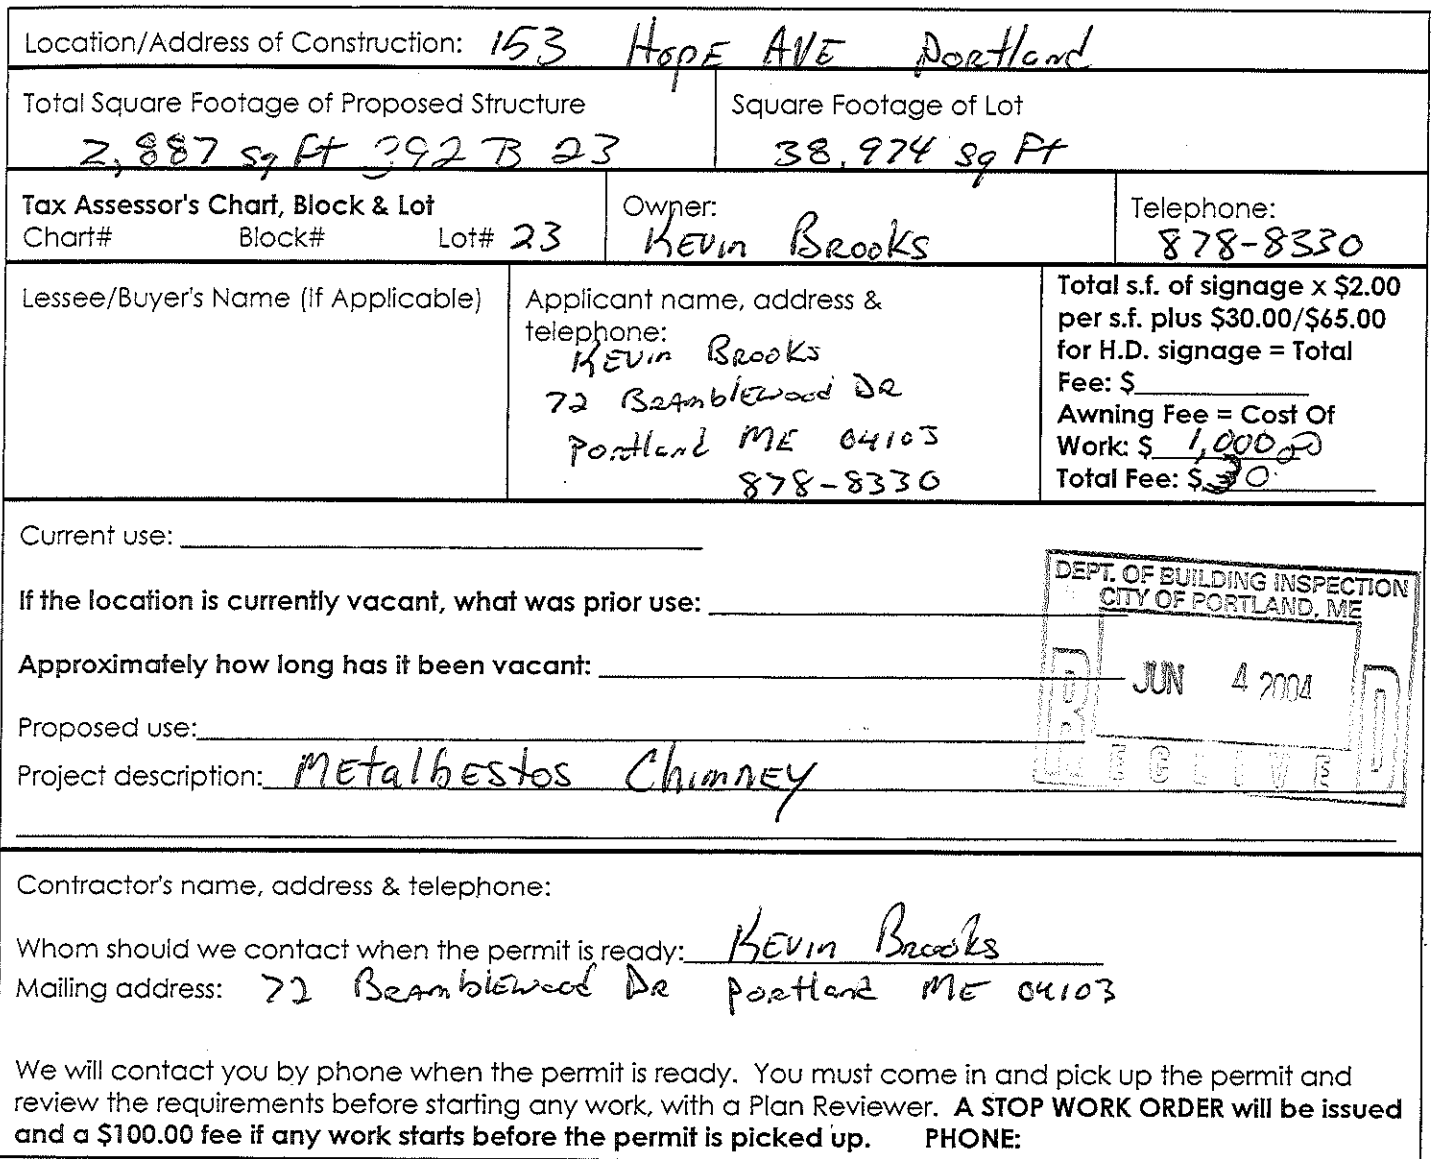 Location/Address of Construction: 153 HOPE AVE Portland
Total Square Footage of Proposed Structure
2,887 sq Ft 392 B 23
Square Footage of Lot
38,974 sq Ft
Tax Assessor's Chart, Block & Lot
Chart# Block# Lot# 23
Owner:
KEVIN BROOKS
Telephone:
878-8330
Lessee/Buyer's Name (If Applicable)
Applicant name, address &
telephone:
KEVIN BROOKS
72 BRAmblEwood DR
Portland ME 04103
878-8330
Total s.f. of signage x $2.00
per s.f. plus $30.00/$65.00
for H.D. signage = Total
Fee: $
Awning Fee = Cost Of
Work: $ 1,000.00
Total Fee: $ 30.
Current use:
If the location is currently vacant, what was prior use:
Approximately how long has it been vacant:
Proposed use:
Project description: METalbEStos ChimnEY
DEPT. OF BUILDING INSPECTION
CITY OF PORTLAND, ME
JUN 4 2004
RECEIVED
Contractor's name, address & telephone:
Whom should we contact when the permit is ready: KEVIN Brooks
Mailing address: 72 BRAmblEwood DR Portland ME 04103
We will contact you by phone when the permit is ready. You must come in and pick up the permit and
review the requirements before starting any work, with a Plan Reviewer. A STOP WORK ORDER will be issued
and a $100.00 fee if any work starts before the permit is picked up. PHONE: